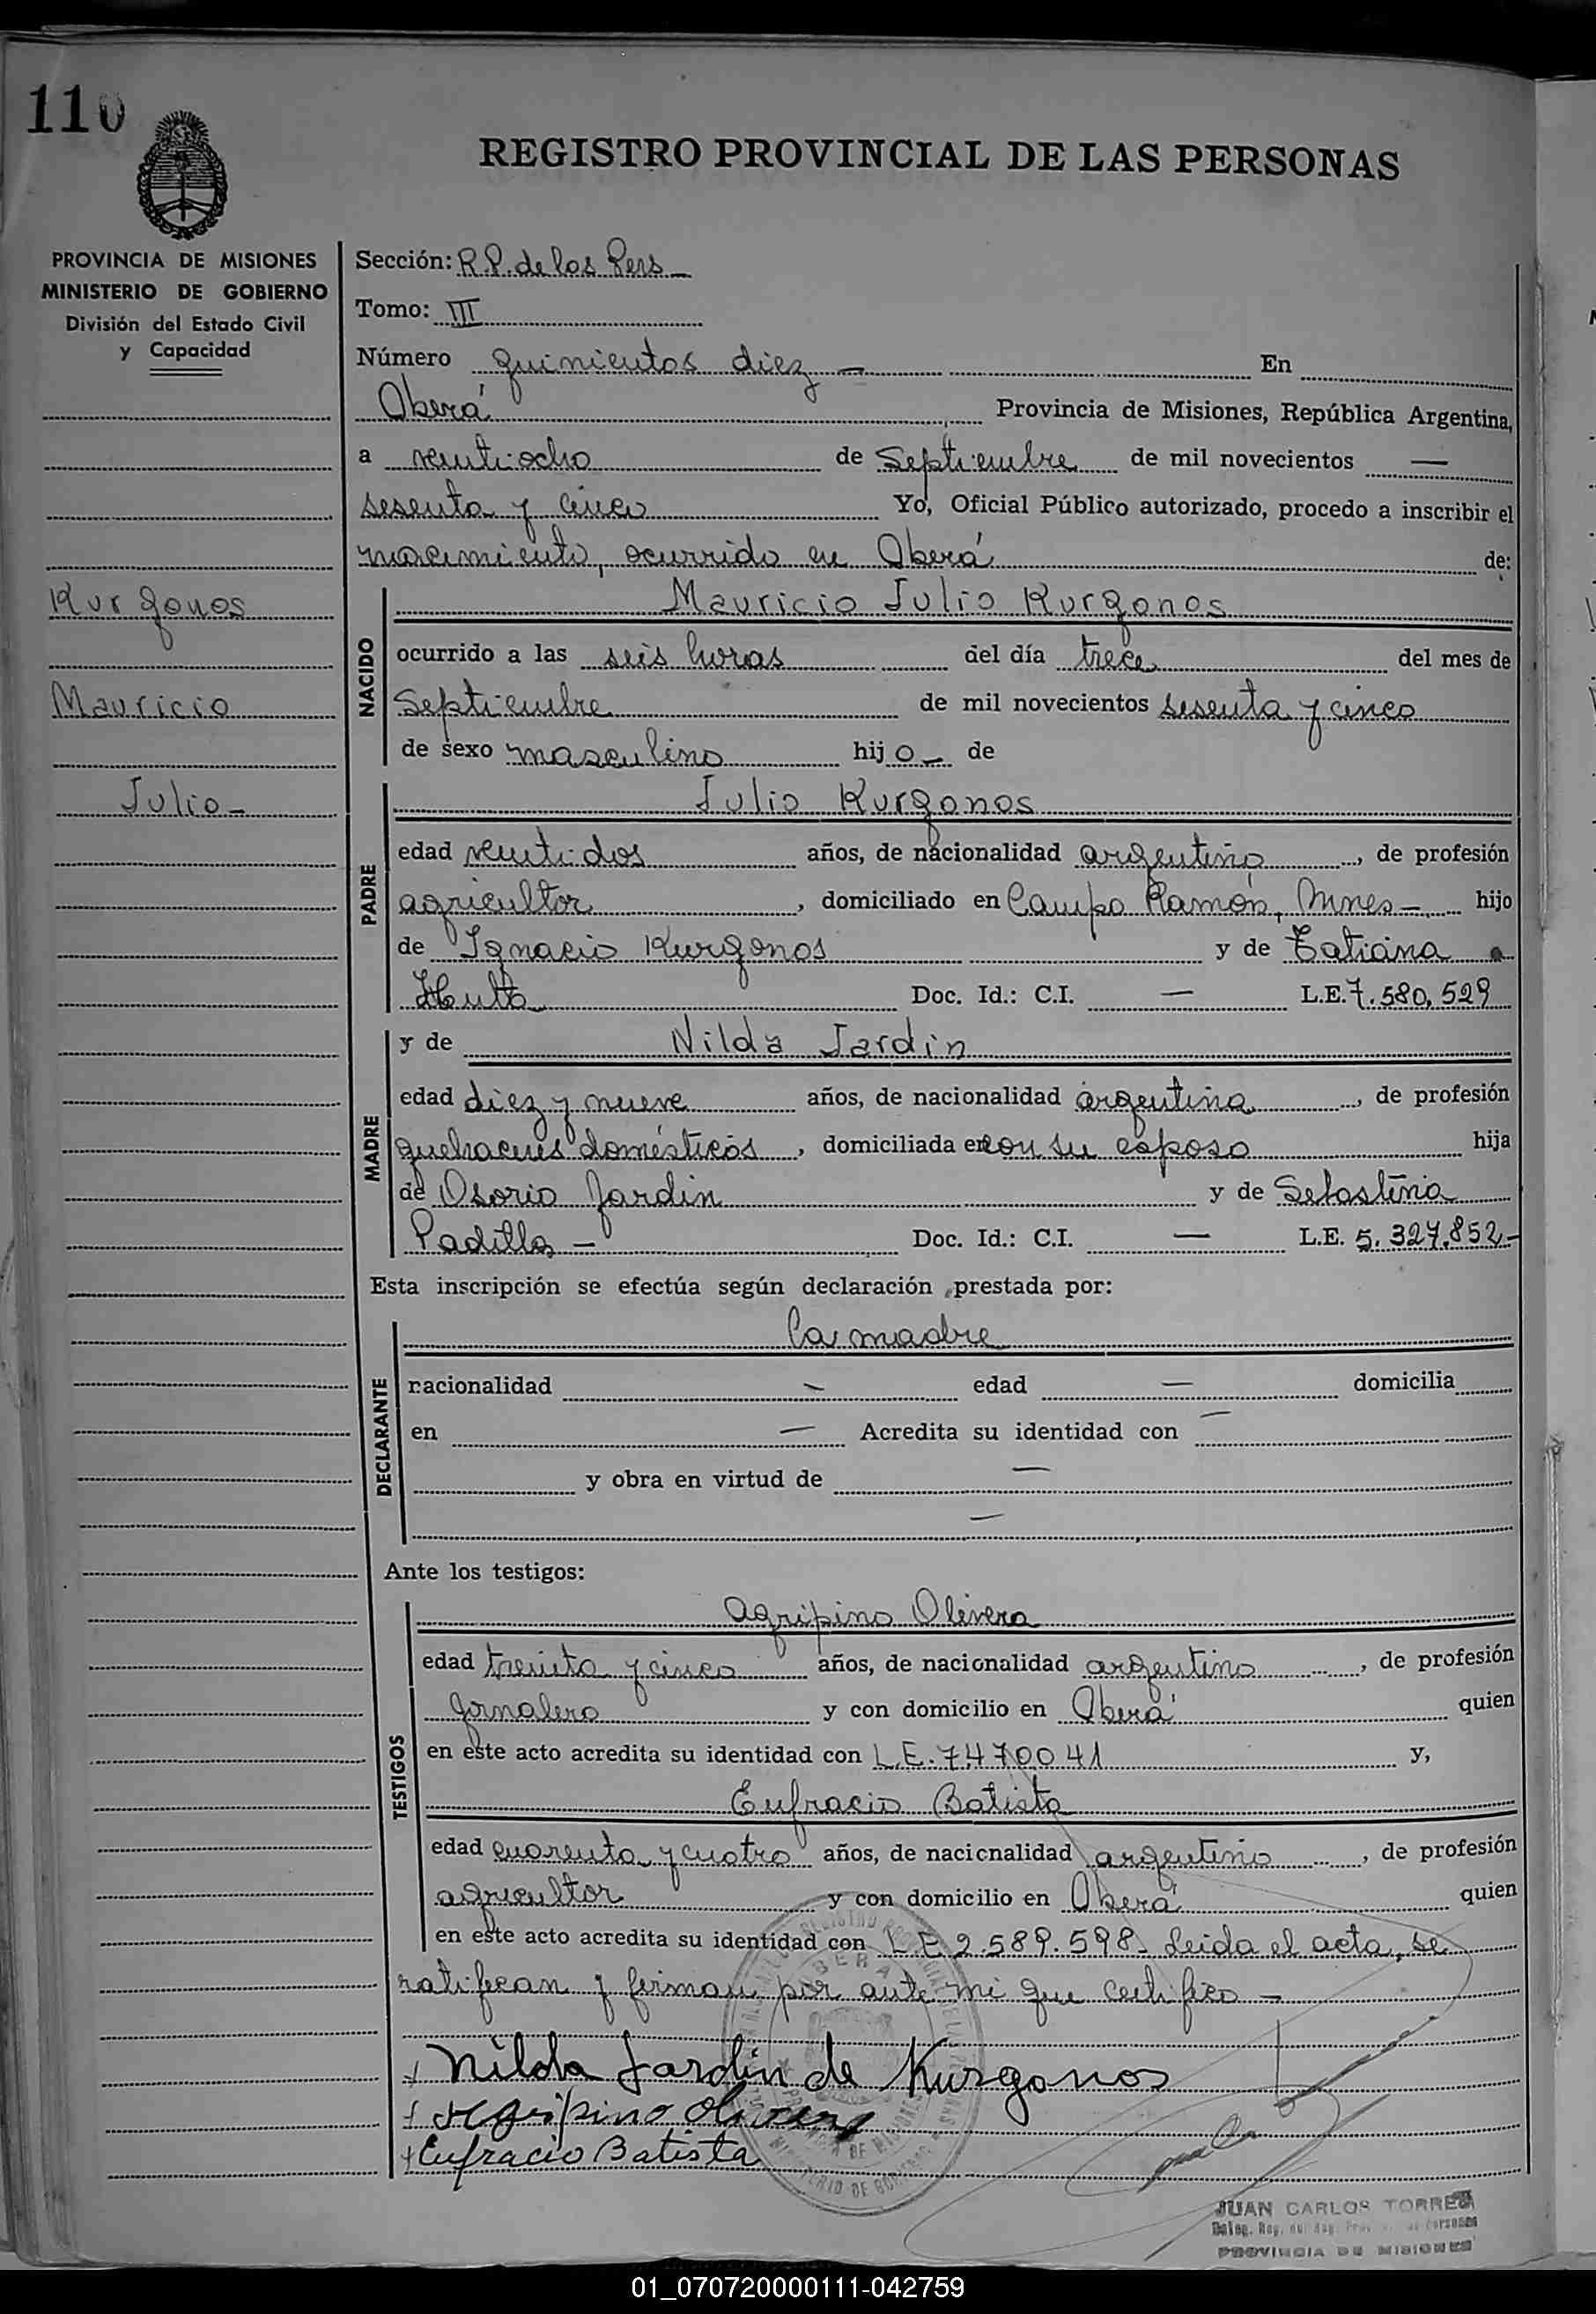 110
REGISTRO PROVINCIAL DE LAS PERSONAS
PROVINCIA DE MISIONES
MINISTERIO DE GOBIERNO
División del Estado Civil
y Capacidad
Kurgonos
Mauricio
Julio -
Sección: R.P. de las Pers -
Tomo: III
Número quinientos diez - En
Oberá Provincia de Misiones, República Argentina,
a veintiocho de Septiembre de mil novecientos —
sesenta y cinco Yo, Oficial Público autorizado, procedo a inscribir el
nacimiento, ocurrido en Oberá de:
NACIDO
Mauricio Julio Kurgonos
ocurrido a las seis horas del día trece del mes de
Septiembre de mil novecientos sesenta y cinco
de sexo masculino hijo - de
PADRE
Julio Kurgonos
edad veintidos años, de nacionalidad argentino, de profesión
agricultor, domiciliado en Campo Ramón, Mnes - hijo
de Ignacio Kurgonos y de Tatiana
Doc. Id.: C.I. — L.E. 7.580.529
MADRE
y de Nilda Jardin
edad diez y nueve años, de nacionalidad argentina, de profesión
quehaceres domésticos, domiciliada en con su esposo hija
de Osorio Jardin y de Sebastina
Padilla - Doc. Id.: C.I. — L.E. 5.327.852-
Esta inscripción se efectúa según declaración prestada por:
DECLARANTE
la madre
nacionalidad — edad — domicilia
en — Acredita su identidad con —
y obra en virtud de —
—
Ante los testigos:
TESTIGOS
Agripino Olivera
edad treinta y cinco años, de nacionalidad argentino, de profesión
jornalero y con domicilio en Oberá quien
en este acto acredita su identidad con L.E. 7470041 y,
Eufracio Batista
edad cuarenta y cuatro años, de nacionalidad argentino, de profesión
agricultor y con domicilio en Oberá quien
en este acto acredita su identidad con L.E. 2.589.598. Leida el acta, se
ratifican y firman por ante mi que certifico -
Nilda Jardin de Kurgonos
Agripino Olivera
Eufracio Batista
JUAN CARLOS TORRES
PROVINCIA DE MISIONES
01_070720000111-042759